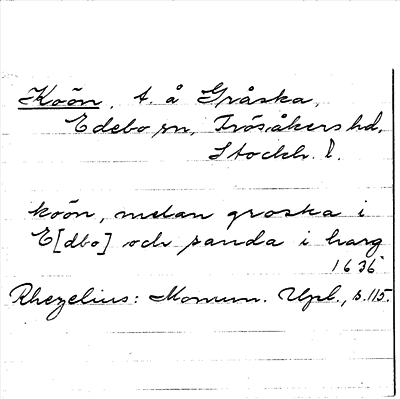 Koön, t. å Gråska,
Edebo sn, Frösåkers hd,
Stockh. l.
koön, melan groska i
E[dbo] och sanda i harg
1636
Rhezelius: Monum. Upl., s. 115.